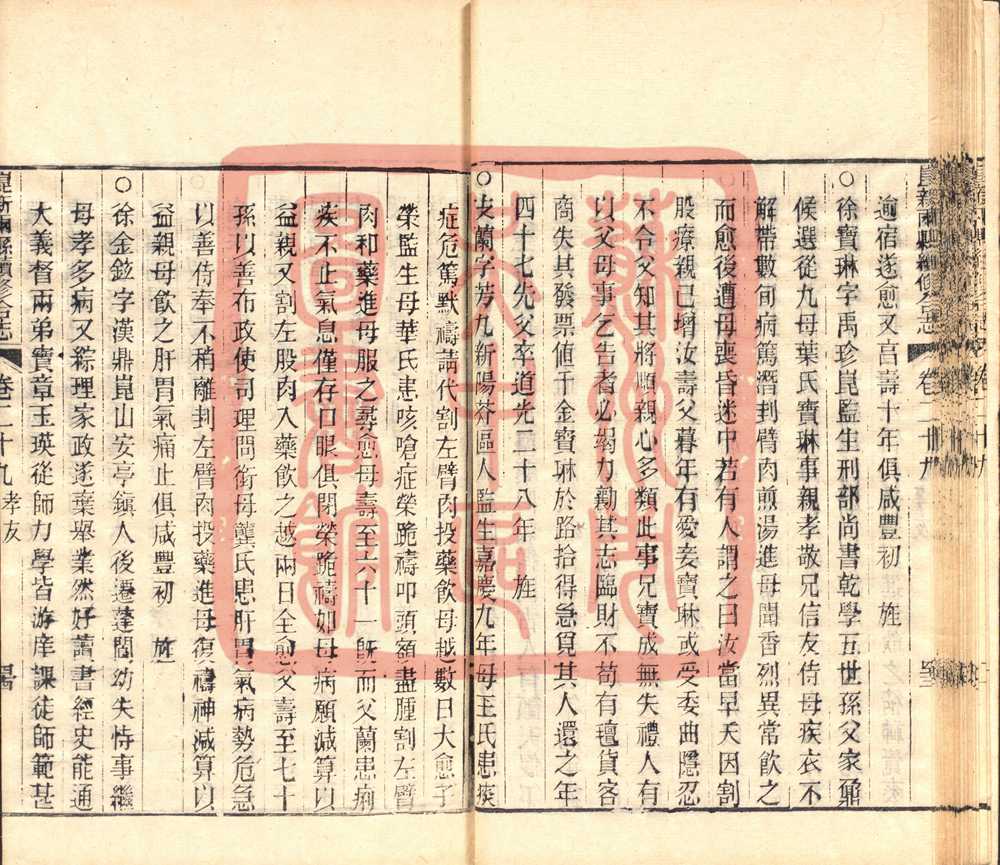 崑新兩縣續修合志 卷二十九
逾宿遂愈又言壽十年俱咸豐初 旌
○徐寶琳字禹珍崑監生刑部尚書乾學五世孫父家鼐
候選從九母葉氏寶琳事親孝敬兄信友侍母疾衣不
解帶數旬病篤潛刲臂肉煎湯進母聞香烈異常飲之
而愈後遭母喪昏迷中若有人謂之曰汝當早夭因割
股療親已增汝壽父暮年有愛妾寶琳或受委曲隱忍
不令父知其將順親心多類此事兄寶成無失禮人有
以父母事乞告者必竭力勷其志臨財不苟有豐貨客
商失其發票値千金寶琳於路拾得急覓其人還之年
四十七先父卒道光二十八年 旌
○支蘭字芳九新陽莽區人監生嘉慶九年母王氏患痰
症危篤默禱請代割左臂肉投藥飲母越數日大愈子
榮監生母華氏患咳嗆症榮跪禱叩頭額盡腫割左臂
肉和藥進母服之尋愈母壽至六十一旣而父蘭患痢
疾不止氣息僅存口眼俱閉榮跪禱如母病願減算以
益親又割左股肉入藥飲之越兩日全愈父壽至七十
孫以善布政使司理問銜母龔氏患肝胃氣病勢危急
以善侍奉不稍離刲左臂肉投藥進母復禱神減算以
益親母飲之肝胃氣痛止俱咸豐初 旌
○徐金鉝字漢鼎崑山安亭鎭人後遷蓬閬幼失恃事繼
母孝多病又綜理家政遂棄舉業然好蓄書經史能通
大義督兩弟寶章玉瑛從師力學皆游庠課徒師範甚
崑新兩縣續修合志 卷二十九 孝友